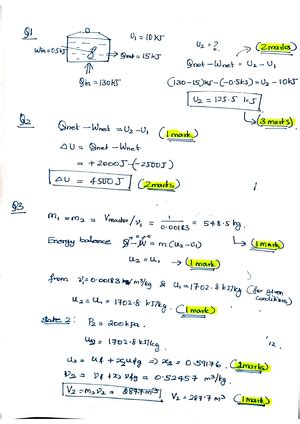 Q1
U₁ = 10 kJ
Win = 0.5 kJ
Qout = 15 kJ
Qin = 130 kJ
U₂ = ? (2 marks)
Qnet - Wnet = U₂ - U₁
(130-15) kJ - (-0.5 kJ) = U₂ - 10 kJ
U₂ = 125.5 kJ
(3 marks)
Q2
Qnet - Wnet = U₂ - U₁ (1 mark)
ΔU = Qnet - Wnet
= +2000J - (-2500J)
ΔU = 4500 J (2 marks)
Q3
m₁ = m₂ = Vreactor/v₁ = 1/0.00183 = 548.5 kg.
(1 mark)
Energy balance Q - W = m(u₂-u₁) (1 mark)
u₂ = u₁ (1 mark)
from v₁ = 0.00183 m³/kg & u₁ = 1702.8 kJ/kg (for given conditions)
u₂ = u₁ = 1702.8 kJ/kg. (1 mark)
State 2: P₂ = 200 kPa.
u₂ = 1702.8 kJ/kg.
u₂ = uf + x₂ufg ⇒ x₂ = 0.59176. (2 marks)
v₂ = vf + x₂ vfg = 0.52457 m³/kg
V₂ = m₂v₂ = 287.7 m³ V₂ = 287.7 m³ (1 mark)